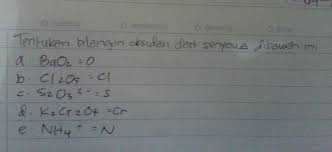 Tentukan bilangan oksidasi dari senyawa dibawah ini
a. BaO2 = O
b. Cl2O5 = Cl
c. S2O3 2- = S
d. K2Cr2O7 = Cr
e. NH4+ = N